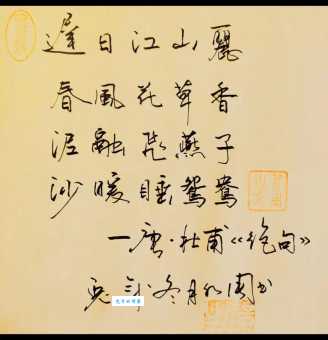 遲日江山麗
春風花草香
泥融飛燕子
沙暖睡鴛鴦
一唐·杜甫《绝句》
冬月